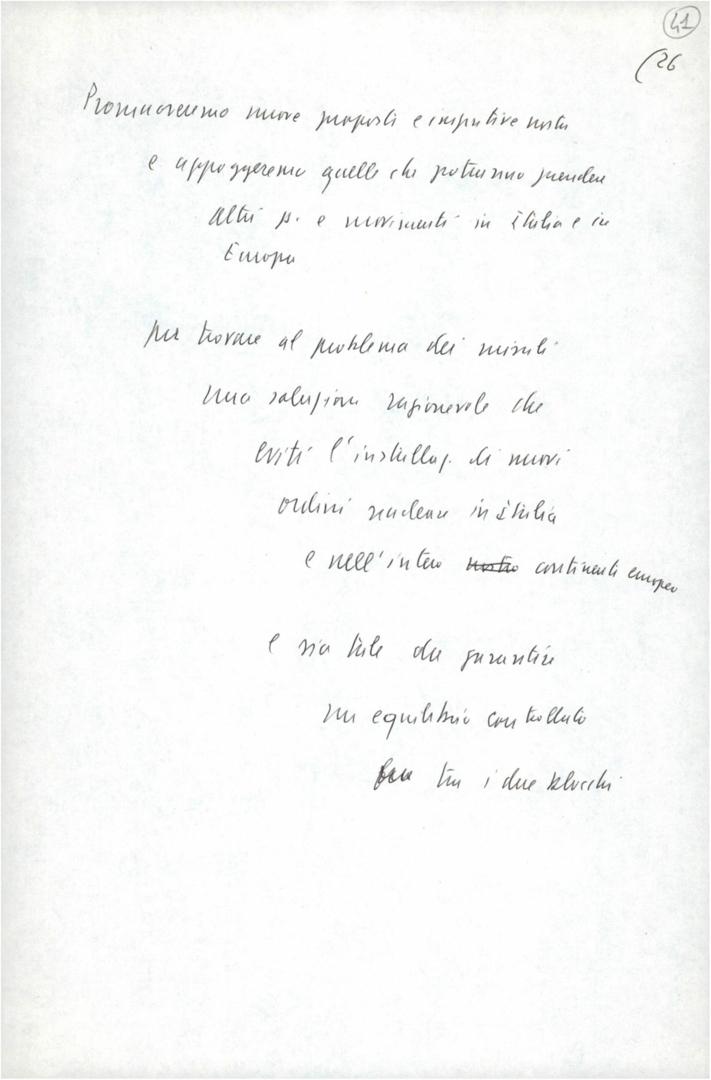 41
(26
Promuoveremo nuove proposte e iniziative nostre
e appoggeremo quelle che potranno prendere
altri p. e movimenti in Italia e in
Europa
per trovare al problema dei missili
una soluzione ragionevole che
eviti l'installaz. di nuovi
ordini nucleari in Italia
e nell'intero nostro continente europeo
e sia tale da garantire
un equilibrio controllato
tra i due blocchi